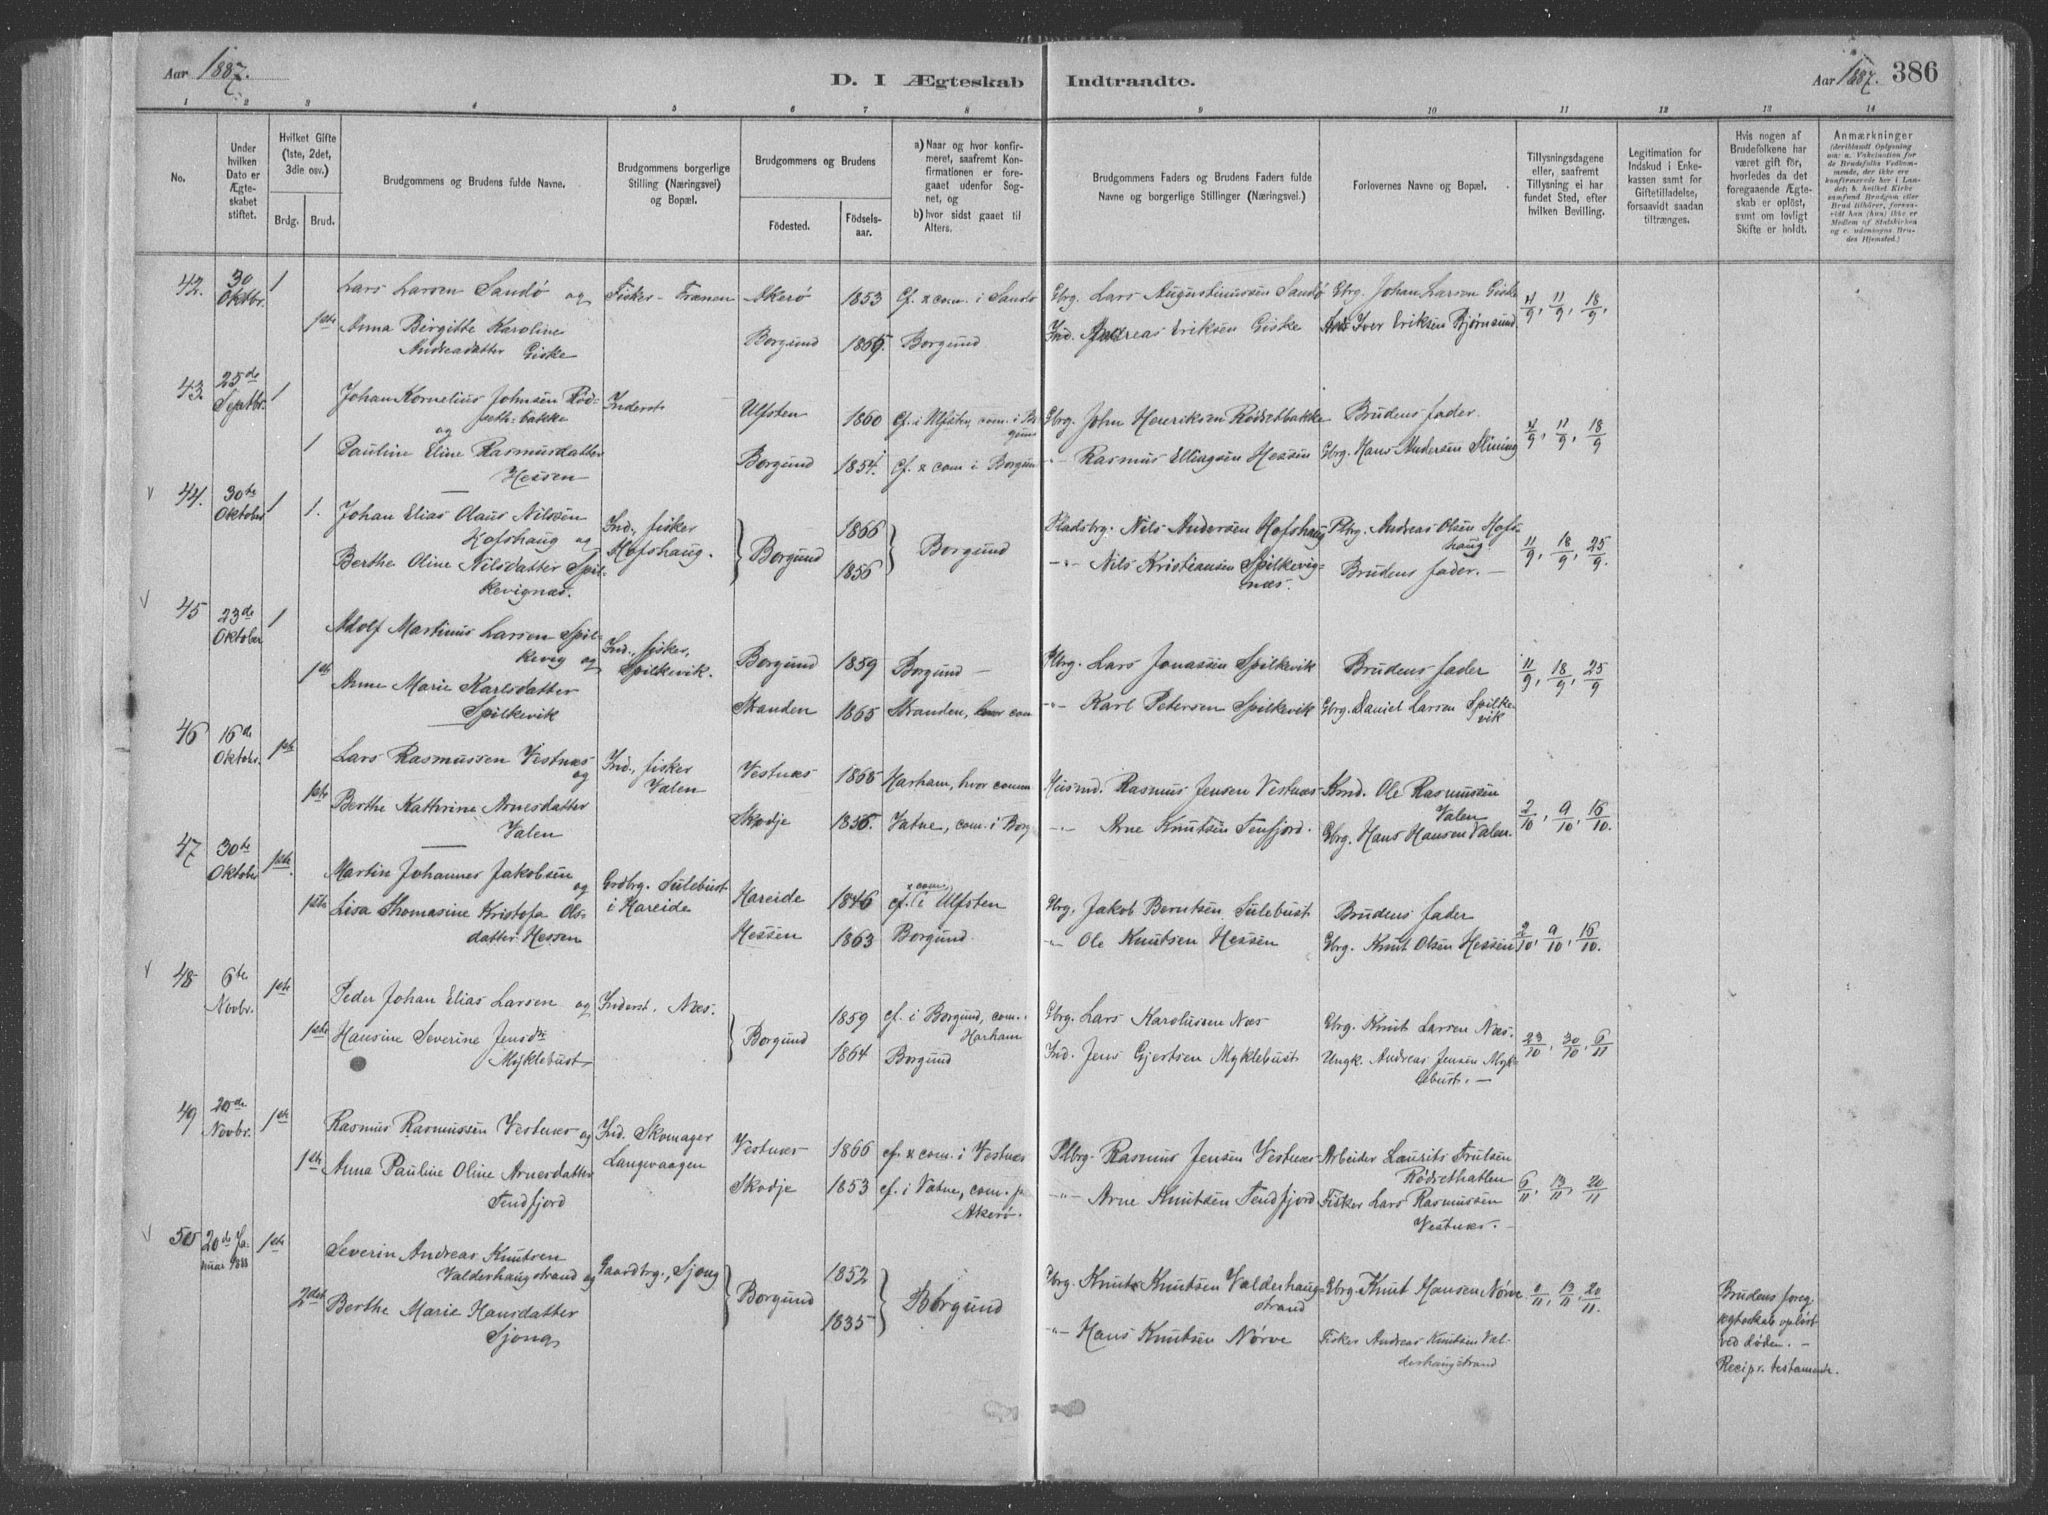 Aar 1887.
D. I Ægteskab Indtraadte.
Aar 1887. 386
1 2 3 4 5 6 7 8 9 10 11 12 13 14
No.
Under hvilken Dato er Ægteskabet stiftet.
Hvilket Gifte (1ste, 2det, 3die osv.)
Brdg. Brud.
Brudgommens og Brudens fulde Navne.
Brudgommens borgerlige Stilling (Næringsvei) og Bopæl.
Brudgommens og Brudens
Födested. Födselsaar.
a) Naar og hvor konfirmeret, saafremt Konfirmationen er foregaaet udenfor Sognet, og
b) hvor sidst gaaet til Alters.
Brudgommens Faders og Brudens Faders fulde Navne og borgerlige Stillinger (Næringsvei.)
Forlovernes Navne og Bopæl.
Tillysningsdagene eller, saafremt Tillysning ei har fundet Sted, efter hvilken Bevilling.
Legitimation for Indskud i Enkekassen samt for Giftetilladelse, forsaavidt saadan tiltrænges.
Hvis nogen af Brudefolkene har været gift før, hvorledes da det foregaaende Ægteskab er opløst, samt om lovligt Skifte er holdt.
Anmærkninger
42. 30 Oktbr. 1 Lars Larsen Sandö og Fisker - Frænen Akerö 1853 Cf. & com. i Sandö Gbrg. Lars Augustinussen Sandö Gbrg. Johan Larsen Giske 4/9, 11/9, 18/9.
1ste Anna Birgitte Karoline Andreadatter Giske Borgund Borgund Ind. Andreas Eriksen Giske Iver Eriksen Bjørnsund
43. 25de Septbr. 1 Johan Kornelius Johnsen Rödseth-bakke og Inderst Ulfsten 1860 Cf. i Ulfsten, com. i Borgund Gbrg. John Henriksen Rødsetbakke Brudens fader. 4/9, 11/9, 18/9
1 Pauline Eline Rasmusdatter Hessen Borgund 1854. cf. & com. i Borgund -"- Rasmus Ellingsen Hessen Gbrg. Hans Andersen Slining
44. 30te Oktober 1 1. Johan Elias Olaus Nilssen Hofshaug og Ind., fisker Hofshaug. Borgund 1866 Borgund Pladsbrg. Nils Andersen Hofshaug Plbrg. Andreas Olsen Hofshaug 11/9, 18/9, 25/9.
Berthe Oline Nilsdatter Spilkevignæs. 1856 -"- Nils Kristiansen Spilkevignæs. Brudens fader. -
45 23de Oktober 1 Adolf Martinus Larsen Spilkevig og Ind., fisker, Spilkevik. Borgund 1859 Borgund - Plbrg. Lars Jonassen Spilkevik Brudens fader 11/9, 18/9, 25/9
1ste Anne Marie Karlsdatter Spilkevik Stranden 1865 Stranden, hvor com -"- Karl Petersen Spilkevik Gbrg. Daniel Larsen Spilkevik
46 16de Oktobr. 1ste Lars Rasmussen Vestnæs og Ind., fisker Valen Vestnæs Harham, hvor comm Husmd. Rasmus Jensen Vestnæs Kmd. Ole Rasmussen Valen 2/10, 9/10, 16/10.
1ste Berthe Kathrine Arnesdatter Valen Skodje 1856. Vatne, com. i Borg -"- Arne Knutsen Tenfjord. Gbrg. Hans Hansen Valen.
47 30te Oktobr 1ste. Martin Johannes Jakobsen og Grdbrg. Sulebust i Hareide Hareide 1846 cf. & com. i Ulfsten Gbrg. Jakob Berntsen Sulebust Brudens fader 2/10, 9/10, 16/10.
1ste Lisa Thomasine Kristofa Olsdatter Hessen Hessen 1863 Borgund. -"- Ole Knutsen Hessen Gbrg. Knut Olsen Hessen
48 6te Novbr. 1ste Peder Johan Elias Larsen og Inderst, Næs. Borgund 1859 cf. i Borgund, com. i Harham Gbrg. Lars Karolussen Næs Gbrg. Knut Larsen Næs. 23/10, 30/10, 6/11
1ste Hansine Severine Jensdtr Myklebust 1864 Borgund Ind. Jens Gjertsen Myklebust Ungk. Andreas Jensen Myklebust. -
49 20de Novbr. 1ste Rasmus Rasmussen Vestnæs og Ind. Skomager Langevaagen Vestnæs 1866 cf. & com. i Vestnæs Plbrg. Rasmus Jensen Vestnæs Arbeider Laurits Trulsen Rødsethatlen 6/11, 13/11, 20/11
1ste Anna Pauline Oline Arnesdatter Tendfjord Skodje 1853 cf. i Vatne, com. p Akerø. -"- Arne Knutsen Tendfjord Fisker Lars Rasmussen Vestnæs. -
50 20de Januar 1888 1ste Severin Andreas Knutsen Valderhaugstrand og Gaardbrg., Sjong Borgund 1852 Borgund Gbrg. Knut Knutsen Valderhaugstrand Gbrg. Knut Hansen Nørve 6/11, 13/11, 20/11. Brudens foreg. ægteskab opløst ved døden. - Recipr. testamente.
2det Berthe Marie Hansdatter Sjong 1835 -"- Hans Knutsen Nørve Fisker Andreas Knutsen Valderhaugstrand